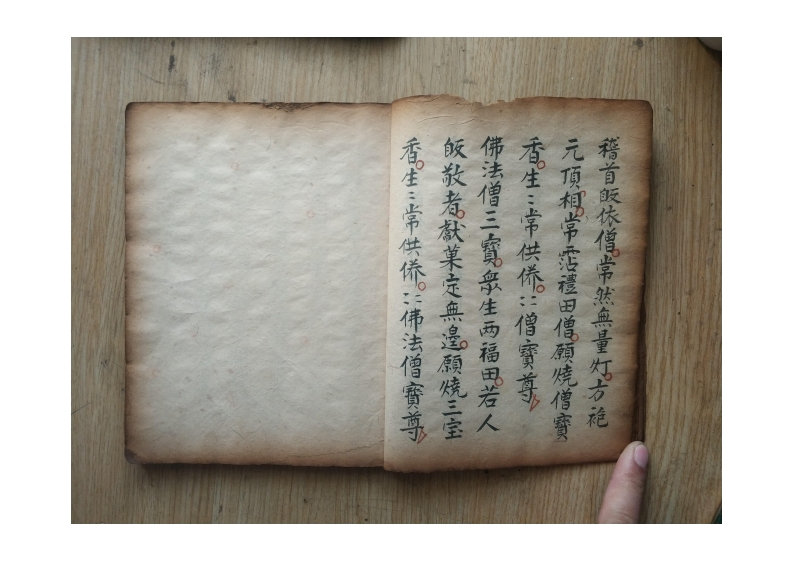 稽首皈依僧常然無量灯方袍
元頂相常霑禮田僧願燒僧寳
香生〻常供侢〻〻僧寳尊
佛法僧三寳衆生两福田若人
皈敬者獻菓定無邊願燒三宝
香生〻常供侢〻〻佛法僧寳尊